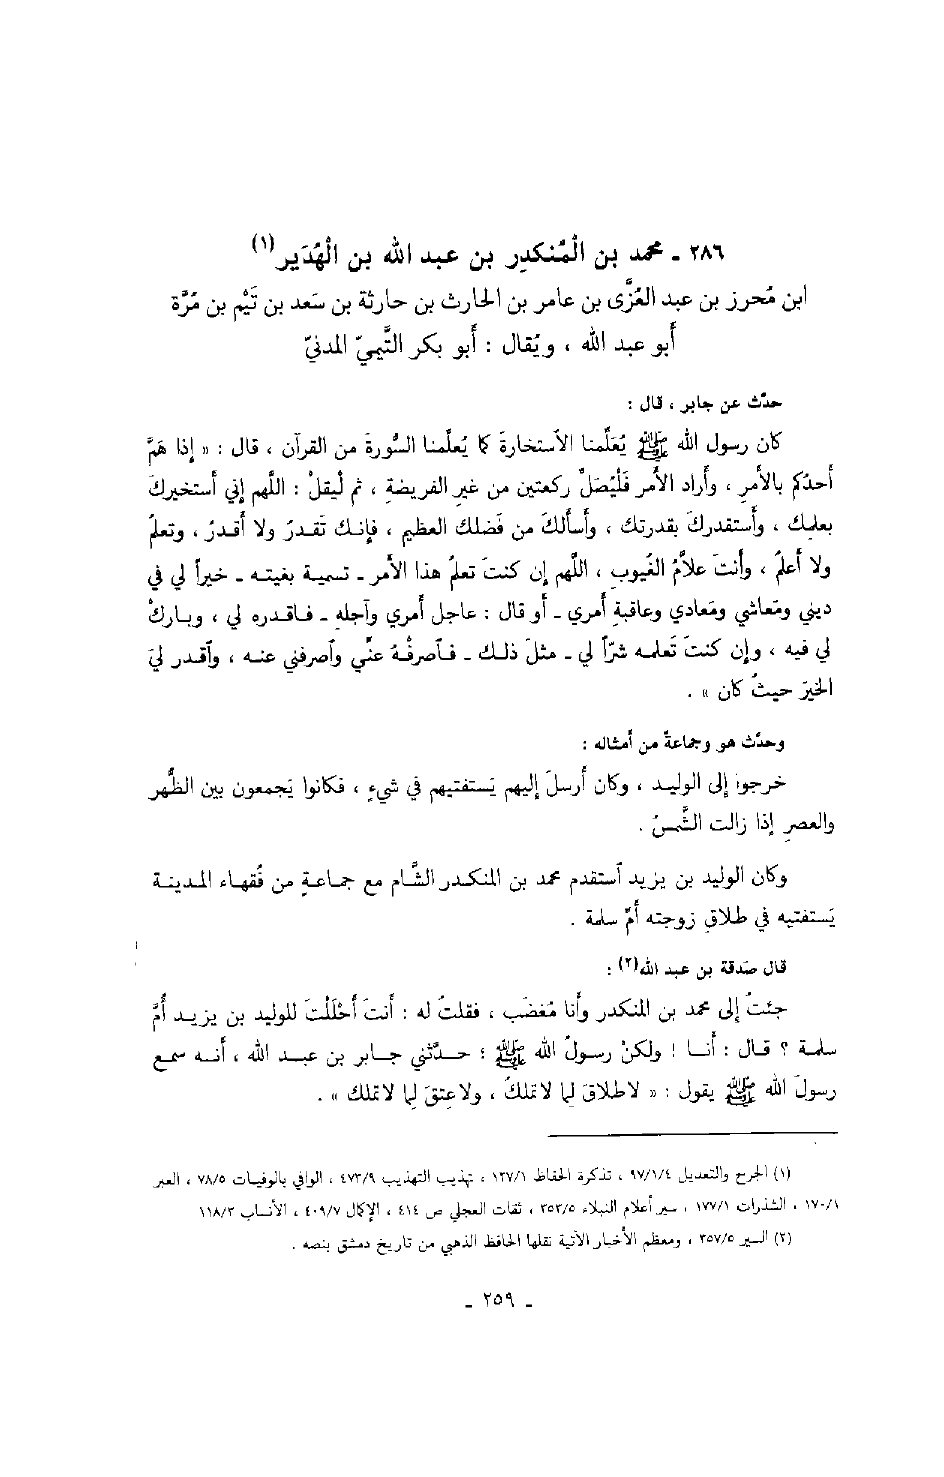 ٢٨٦ ـ محمد بن الْمُنكدِر بن عبد الله بن الْهُدَير(١)
ابن مُحرز بن عبد العُزَّى بن عامر بن الحارث بن حارثة بن سَعد بن تَيْم بن مُرَّة
أَبو عبد الله ، ويُقال : أَبو بكر التَّيميّ المدنيّ
حدَّث عن جابر ، قال :
كان رسول الله ﷺ يُعَلِّمنا الاَستخارةَ كما يُعلّمنا السُّورةَ من القرآن ، قال : « إذا هَمَّ
أَحدُكم بالأَمرِ ، وأَراد الأَمر فَلْيُصَلّ ركعتين من غيرِ الفريضةِ ، ثم لْيقلْ : اللَّهم إنّي أَستخيركَ
بعلمك ، وأَستقدركَ بقدرتك ، وأَسألكَ من فَضلك العظيم ، فإنك تَقدرُ ولا أَقدرُ ، وتعلمُ
ولا أَعلمُ ، وأَنتَ علاَّمُ الغُيوب ، اللَّهم إن كنتَ تعلمُ هذا الأَمر ـ تسمية بغيته ـ خيراً لي في
ديني ومَعاشي ومَعادي وعاقبةِ أَمري ـ أَو قال : عاجل أَمري وآجله ـ فاقدره لي ، وباركْ
لي فيه ، وإن كنتَ تَعلمه شرّاً لي ـ مثلَ ذلك ـ فٱصرفْهُ عنِّي وٱصرفني عنه ، وٱقدر ليَ
الخيرَ حيثُ كان » .
وحدَّث هو وجماعةٌ من أَمثاله :
خرجوا إلى الوليد ، وكان أَرسلَ إليهم يَستفتيهم في شيءٍ ، فكانوا يَجمعون بين الظُّهر
والعصرِ إذا زالت الشَّمسُ .
وكان الوليد بن يزيد ٱستقدم محمد بن المنكدر الشَّام مع جماعةٍ من فُقهاء المدينة
يَستفتيه في طلاقِ زوجته أُمّ سلمة .
قال صَدقة بن عبد الله(٢) :
جئتُ إلى محمد بن المنكدر وأَنا مُغضَب ، فقلتُ له : أَنتَ أَحْلَلْتَ للوليد بن يزيد أُمَّ
سلمة ؟ قال : أَنا ! ولكنْ رسولُ الله ﷺ ؛ حدَّثني جابر بن عبد الله ، أَنه سمع
رسولَ الله ﷺ يقول : « لا طلاقَ لِما لا تملكُ ، ولا عِتقَ لِما لا تملك » .
(١) الجرح والتعديل ٩٧/١/٤ ، تذكرة الحفاظ ١٢٧/١ ، تهذيب التهذيب ٤٧٣/٩ ، الوافي بالوفيات ٧٨/٥ ، العبر
١٧٠/١ ، الشذرات ١٧٧/١ ، سير أعلام النبلاء ٣٥٣/٥ ، ثقات العجلي ص ٤١٤ ، الإكمال ٤٠٩/٧ ، الأنساب ١١٨/٣
(٢) السير ٣٥٧/٥ ، ومعظم الأخبار الآتية نقلها الحافظ الذهبي من تاريخ دمشق بنصه .
ـ ٢٥٩ ـ